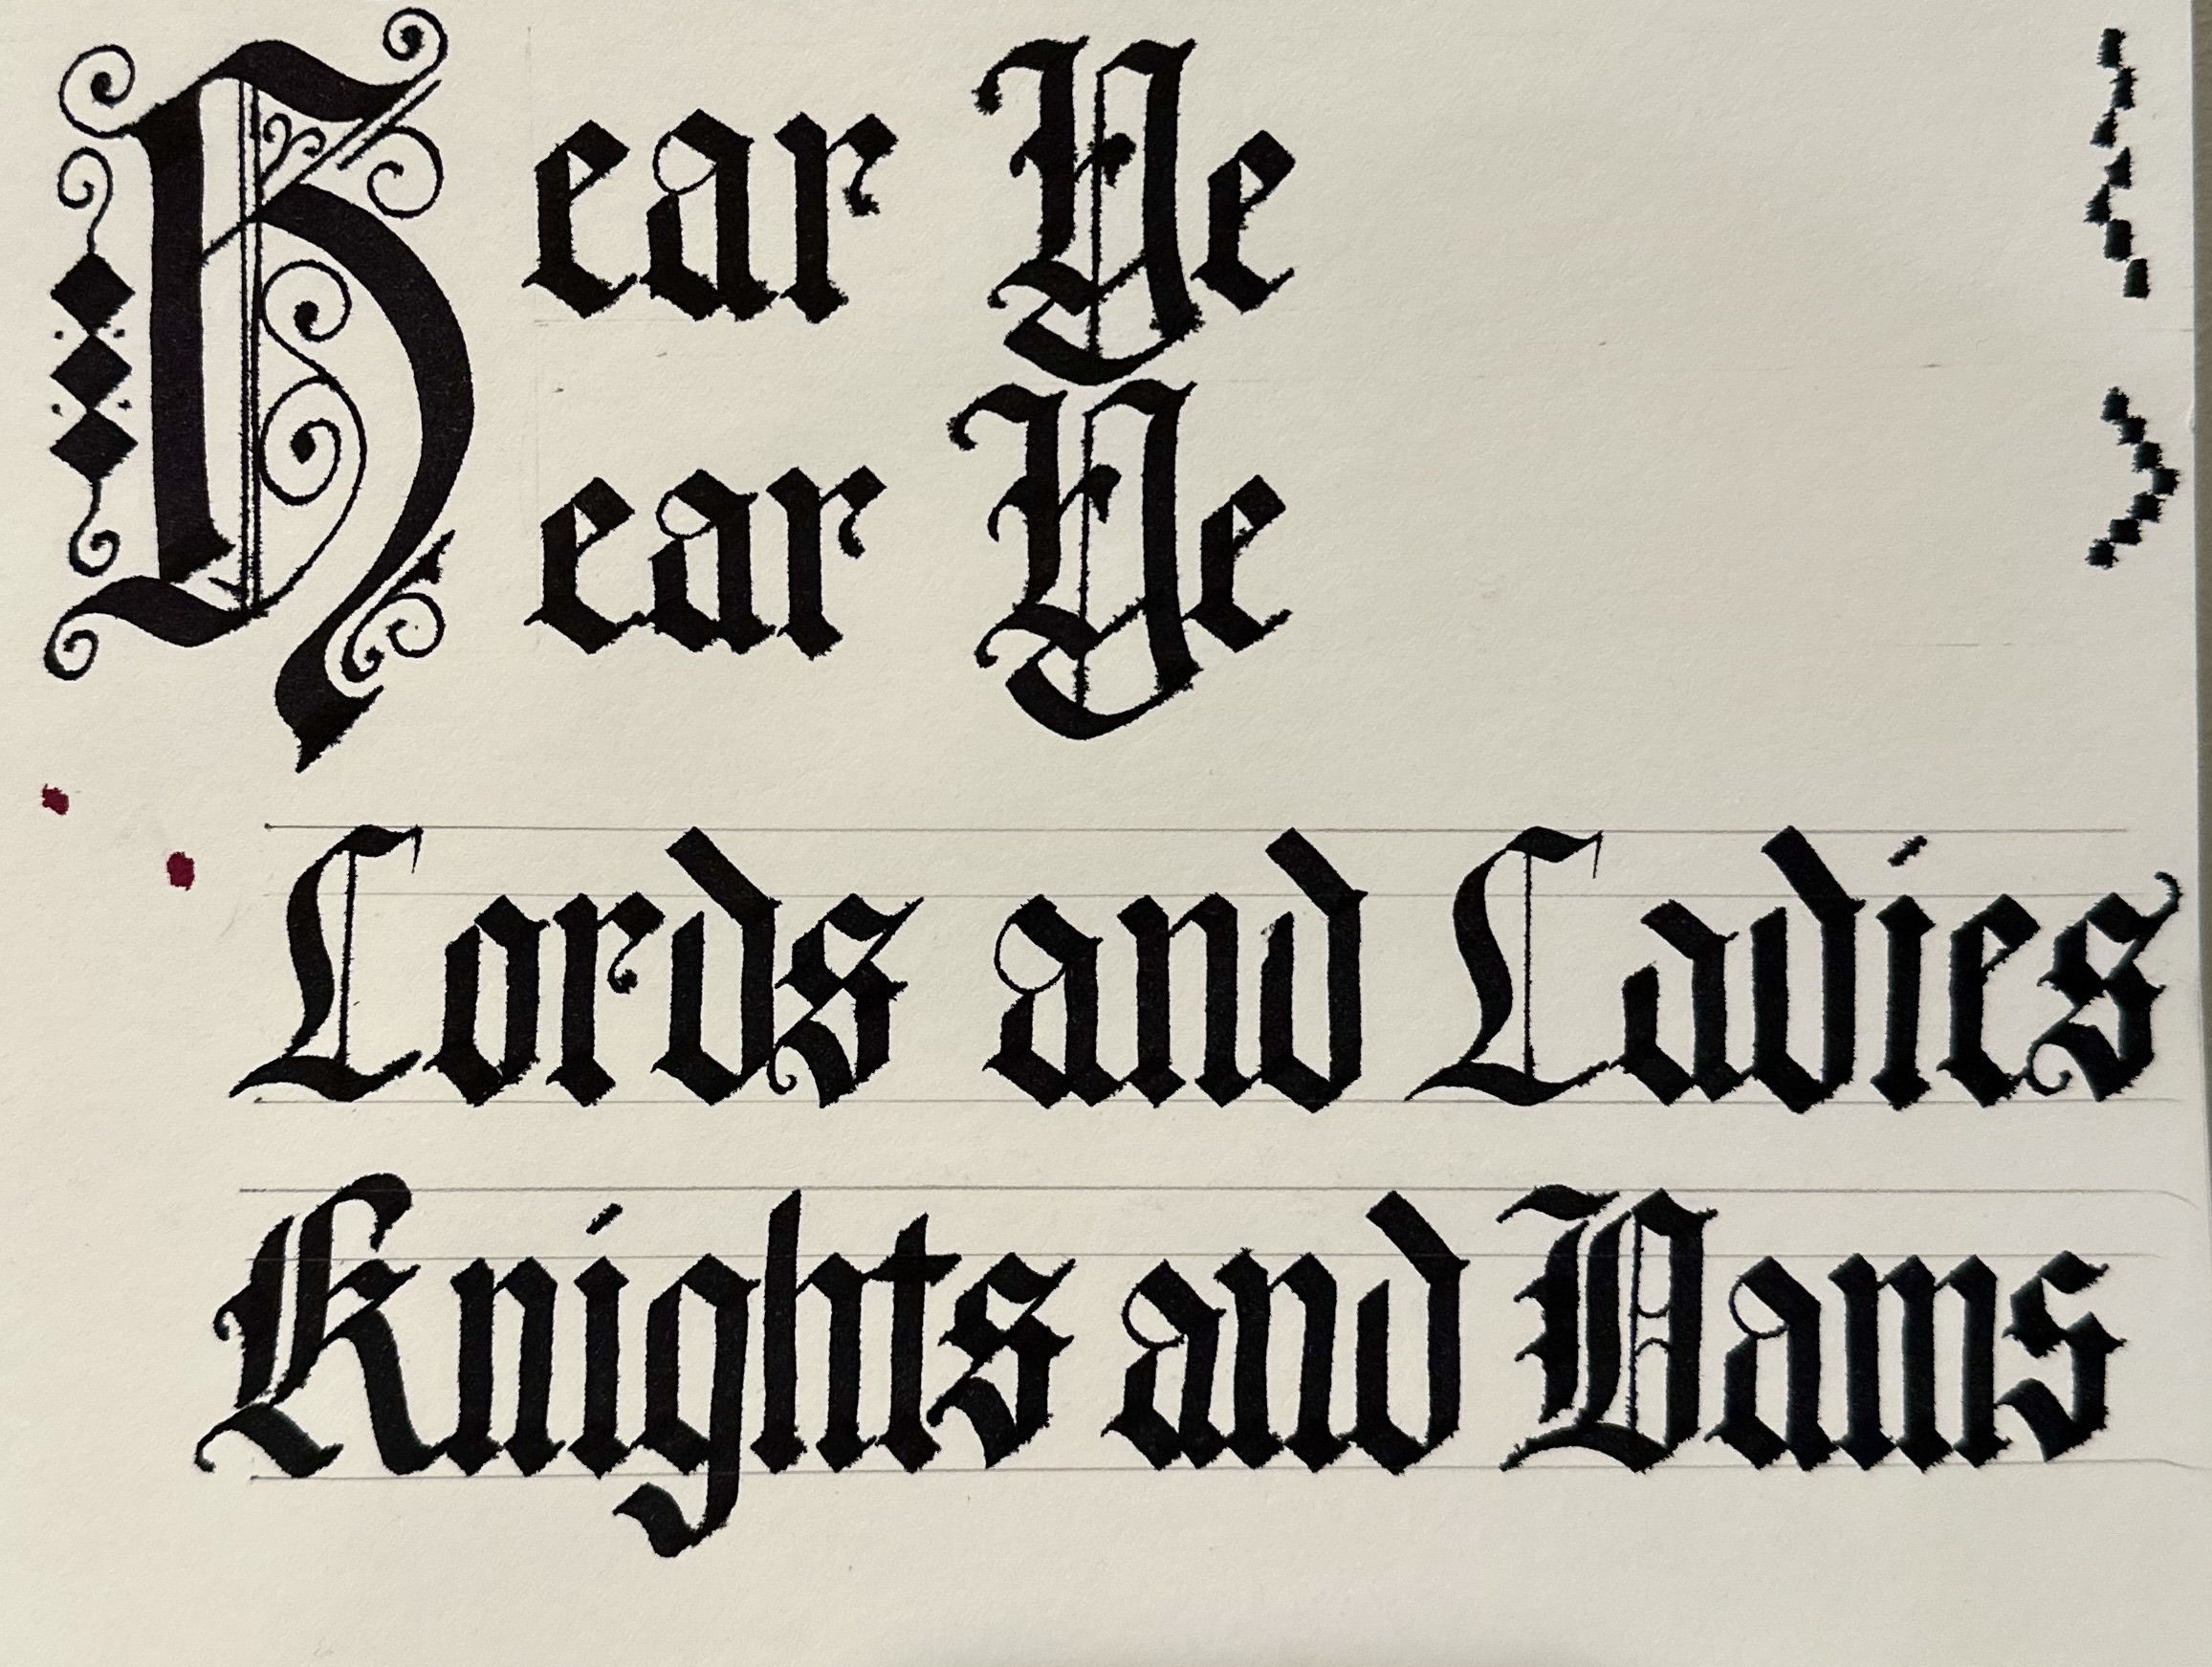 Hear Ye
ear Ye
Lords and Ladies
Knights and Dams